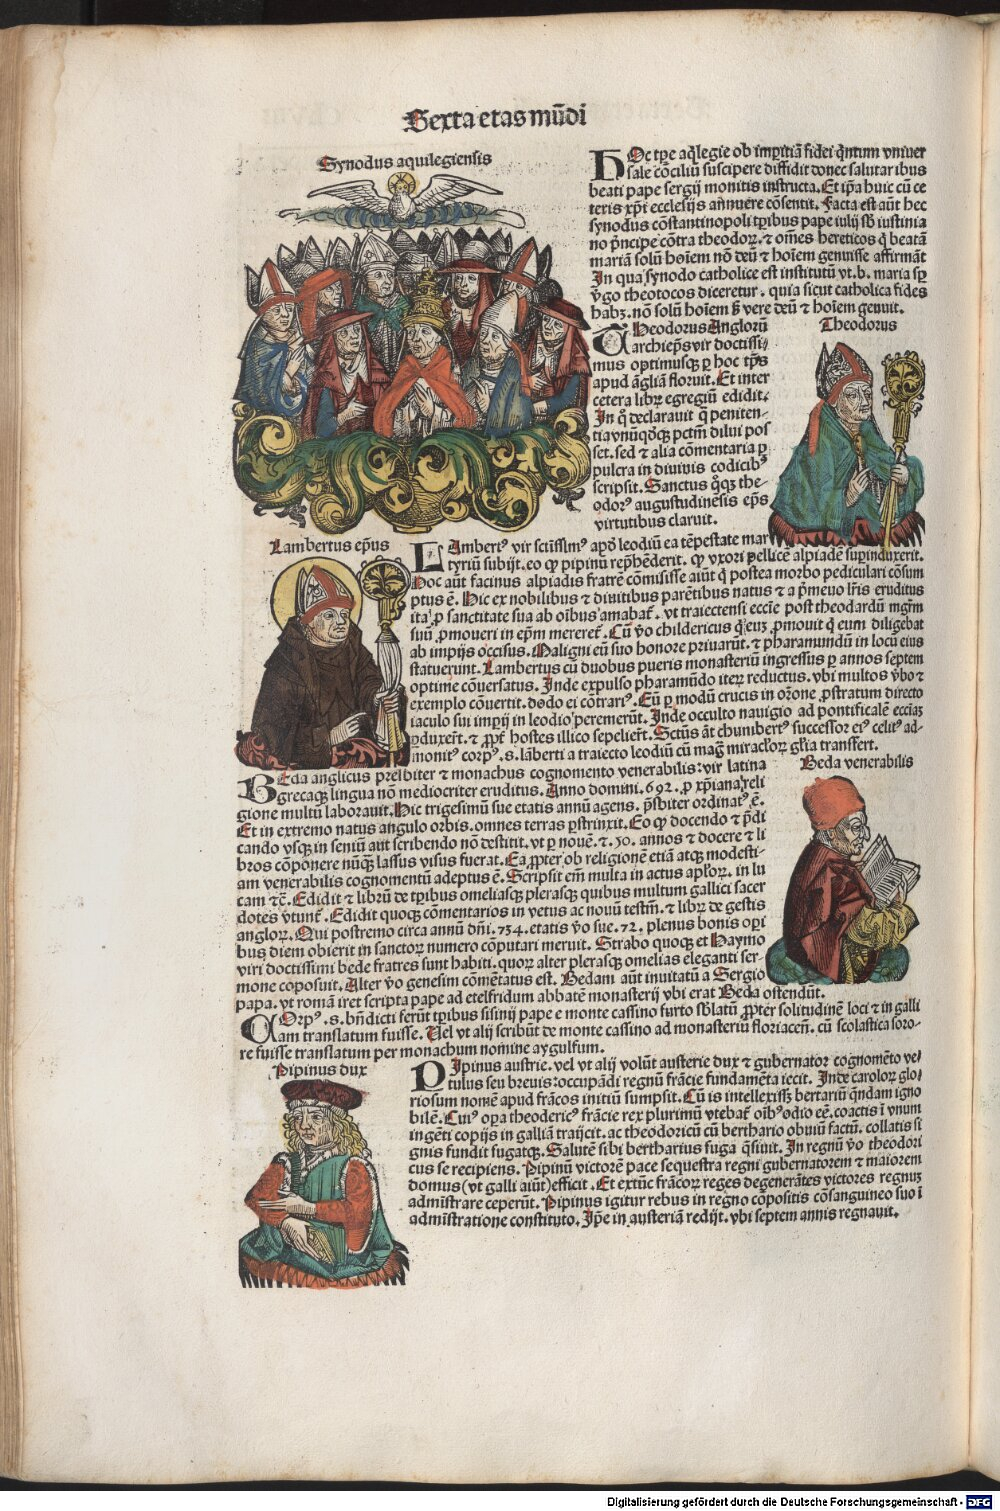 Sexta etas mūdi
Synodus aquilegiensis
HOc tp̄e aq̄legie ob impitiā fidei q̄ntum vniuer
sale cōciliū suscipere diffidit donec salutaribus
beati pape sergij monitis instructa. Et ip̄a huic cū ce
teris xp̄i ecclesijs annuere cōsentit. Facta est aūt hec
synodus cōstantinopoli tp̄ibus pape iulij sb̄ iustinia
no p̄ncipe cōtra theodoꝝ. ⁊ om̄es hereticos q̄ beatā
mariā solū hoīem nō deū ⁊ hoīem genuisse affirmāt
In qua synodo catholice est institutū vt .b. maria sp̄
v̄go theotocos diceretur. quia sicut catholica fides
habꝫ. nō solū hoīem sꝫ vere deū ⁊ hoīem genuit.
Theodorus
THeodorus Anglorū
archiep̄s vir doctissi-
mus optimusqꝫ ꝑ hoc tp̄s
apud āgliā floruit. Et inter
cetera libꝝ egregiū edidit.
In q̄ declarauit q̄ peniten-
tia vnūqd̄qꝫ pctm̄ dilui pos
set. sed ⁊ alia cōmentaria ꝑ
pulcra in diuinis codicibꝰ
scripsit. Sanctus qͦqꝫ the-
odorꝰ augustudinēsis ep̄s
virtutibus claruit.
Lambertus ep̄us
LAmbertꝰ vir sctīssimꝰ apd̄ leodiū ea tēpestate mar
tyriū subijt. eo ꝙ pipinū rep̄hēderit. ꝙ vxori pellicē alpiadē sup̄induxerit.
Hoc aūt facinus alpiadis fratrē cōmisisse aiūt q̄ postea morbo pediculari cōsum
ptus ē. Hic ex nobilibus ⁊ diuitibus parētibus natus ⁊ a p̄meuo lr̄is eruditus
ita ꝓ sanctitate sua ab oībus amabat̄. vt traiectensi eccīe post theodardū mgr̄m
suū ꝓmoueri in ep̄m mereret̄. Cū v̄o childericus q̄ euꝫ ꝓmouit q̄ eum diligebat
ab impijs occisus. Maligni eū suo honore priuarūt. ⁊ pharamundū in locū eius
statuerunt. Lambertus cū duobus pueris monasteriū ingressus ꝑ annos septem
optime cōuersatus. Inde expulso pharamūdo iteꝝ reductus. vbi multos v̄bo ⁊
exemplo cōuertit. dodo ei cōtrariꝰ. Eū ꝑ modū crucis in or̄one ꝓstratum directo
iaculo sui impij in leodio peremerūt. Inde occulto nauigio ad pontificalē eccīaꝫ
ꝑduxer̄t. ⁊ ꝓpt̄ hostes illico sepelier̄t. Sctūs aūt chunibertꝰ successor eiꝰ celitꝰ ad-
monitꝰ corpꝰ .s. lāberti a traiecto leodiū cū maḡ miracłoꝝ gl̄ia transfert.
Beda venerabilis
BEda anglicus presbiter ⁊ monachus cognomento venerabilis: vir latina
grecaqꝫ lingua nō mediocriter eruditus. Anno domini. 692. ꝓ xp̄iana reli
gione multū laborauit. Hic trigesimū sue etatis annū agens. p̄sbiter ordinatꝰ ē.
Et in extremo natus angulo orbis. omnes terras ꝑstrinxit. Eo ꝙ docendo ⁊ p̄di
cando vsqꝫ in seniū aut scribendo nō destitit. vt ꝑ nouē. ⁊. 50. annos ⁊ docere ⁊ li
bros cōponere nūqꝫ lassus visus fuerat. Ea ꝓpter ob religionē etiā atqꝫ modesti-
am venerabilis cognomentū adeptus ē. Scripsit em̄ multa in actus apłoꝝ. in lu
cam ⁊c̄. Edidit ⁊ librū de tp̄ibus omeliasqꝫ plerasqꝫ quibus multum gallici sacer
dotes vtunt̄. Edidit quoqꝫ cōmentarios in vetus ac nouū testm̄. ⁊ libꝝ de gestis
angloꝝ. Qui postremo circa annū dn̄i. 734. etatis v̄o sue. 72. plenus bonis oꝑi
bus diem obierit in sanctoꝝ numero cōputari meruit. Strabo quoqꝫ et Haymo
viri doctissimi bede fratres sunt habiti. quoꝝ alter plerasqꝫ omelias eleganti ser-
mone coposuit. Alter v̄o genesim cōmētatus est. Bedam aūt inuitatū a Sergio
papa. vt romā iret scripta pape ad etelfridum abbatē monasterij vbi erat Beda ostendūt.
COrpꝰ .s. bn̄dicti ferūt tp̄ibus sisinij pape e monte cassino furto sb̄latū ꝓpter solitudinē loci ⁊ in galli
am translatum fuisse. Vel vt alij scribūt de monte cassino ad monasteriū floriaceñ. cū scolastica soro-
re fuisse translatum per monachum nomine aygulfum.
Pipinus dux
PIpinus austrie. vel vt alij volūt austerie dux ⁊ gubernator cognomēto ve-
tulus seu breuis: occupādi regnū frācie fundamēta iecit. Inde caroloꝝ glo-
riosum nomē apud frācos initiū sumpsit. Cū is intellexissꝫ bertariū q̄ndam igno
bilē. Cuiꝰ oꝑa theodericꝰ frācie rex plurimū vtebat̄ oībꝰ odio eē. coactis ī vnum
ingēti copijs in galliā traijcit. ac theodoricū cū berthario obuiū factū. collatis si
gnis fundit fugatqꝫ. Salutē sibi bertharius fuga q̄siuit. In regnū v̄o theodori
cus se recipiens. Pipinū victorē pace sequestra regni gubernatorem ⁊ maiorem
domus (vt galli aiūt) efficit. Et extūc frācoꝝ reges degenerātes victores regnuꝫ
admīstrare ceperūt. Pipinus igitur rebus in regno cōpositis cōsanguineo suo ī
admīstratione constituto. Ip̄e in austeriā redijt. vbi septem annis regnauit.
Digitalisierung gefördert durch die Deutsche Forschungsgemeinschaft - DFG